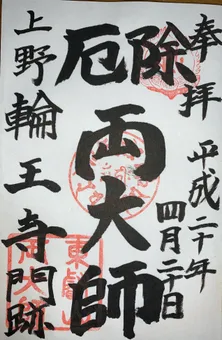 奉拝 平成二十年
四月二十日
除厄
両大師
上野輪王寺門跡